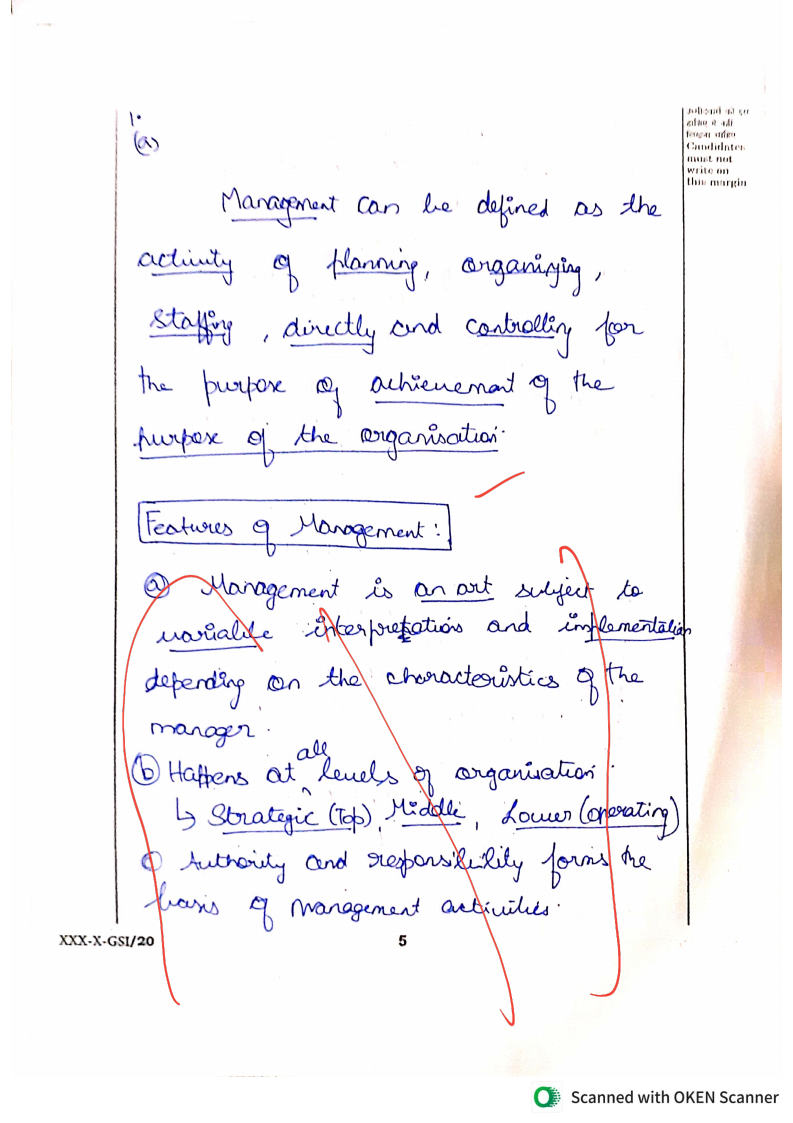 1.
(a)
Candidates
must not
write on
this margin
Management can be defined as the
activity of planning, organising,
staffing, directly and controlling for
the purpose of achievement of the
purpose of the organisation.
Features of Management:
(a) Management is an art subject to
variable interpretation and implementation
depending on the characteristics of the
manager.
(b) Happens at all levels of organisation.
↳ Strategic (Top), Middle, Lower (operating)
(c) Authority and responsibility forms the
basis of management activities.
XXX-X-GSI/20
5
Scanned with OKEN Scanner